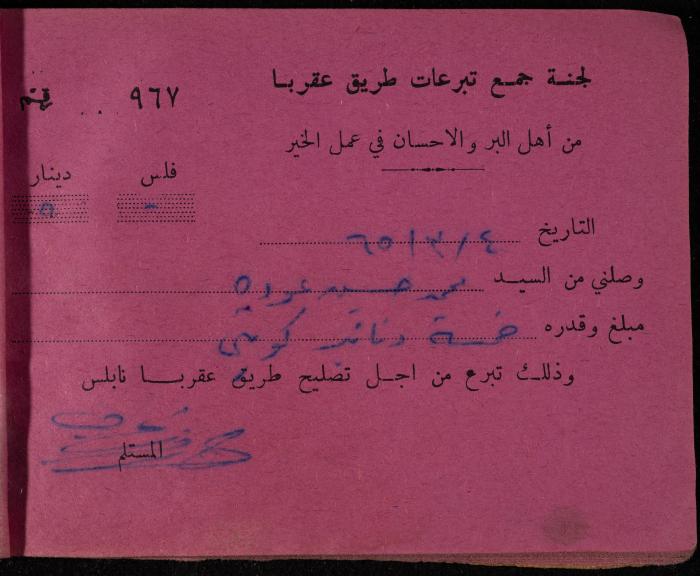 لجنة جمع تبرعات طريق عقربا
٩٦٧
من أهل البر والاحسان في عمل الخير
فلس دينار
- ٥
التاريخ ٤ / ٣ / ٦٥
وصلني من السيد محمد حسين عوده
مبلغ وقدره خمسة دنانير كويتي
وذلك تبرع من اجل تصليح طريق عقربا نابلس
المستلم